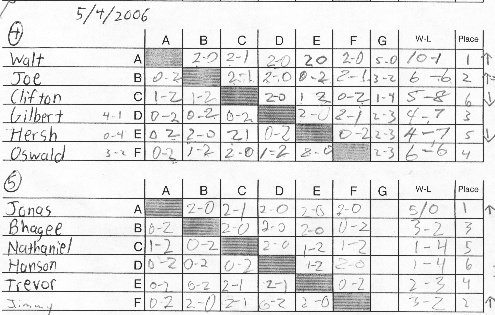 5/4/2006
4 A B C D E F G W-L Place
Walt A 2-0 2-1 2-0 20 2-0 5-0 10-1 1 ↑
Joe B 0-2 2-1 2-0 0-2 2-1 3-2 6-6 2 ↑
Clifton C 1-2 1-2 2-0 1 2 0-2 1-4 5-8 6 ↓
Gilbert 4-1 D 0-2 0-2 0-2 2-0 2-1 2-3 4-7 3
Hersh 0-4 E 0 2 2-0 21 0-2 0-2 2-3 4-7 5 ↓
Oswald 3-2 F 0-2 1-2 2-0 1-2 2-0 2-3 6-6 4
5 A B C D E F G W-L Place
Jonas A 2-0 2-1 2-0 2-0 2-0 5/0 1 ↑
Bhagee B 0-2 2-0 2-0 2-0 0-2 3-2 3
Nathaniel C 1-2 0-2 2-0 1-2 1-2 1-4 5
Hanson D 0-2 0-2 0-2 1-2 2-0 1-4 6
Trevor E 0-2 0-2 2-1 2-1 0-2 2-3 4
Jimmy F 0 2 2-0 2-1 0-2 2-0 3-2 2 ↑